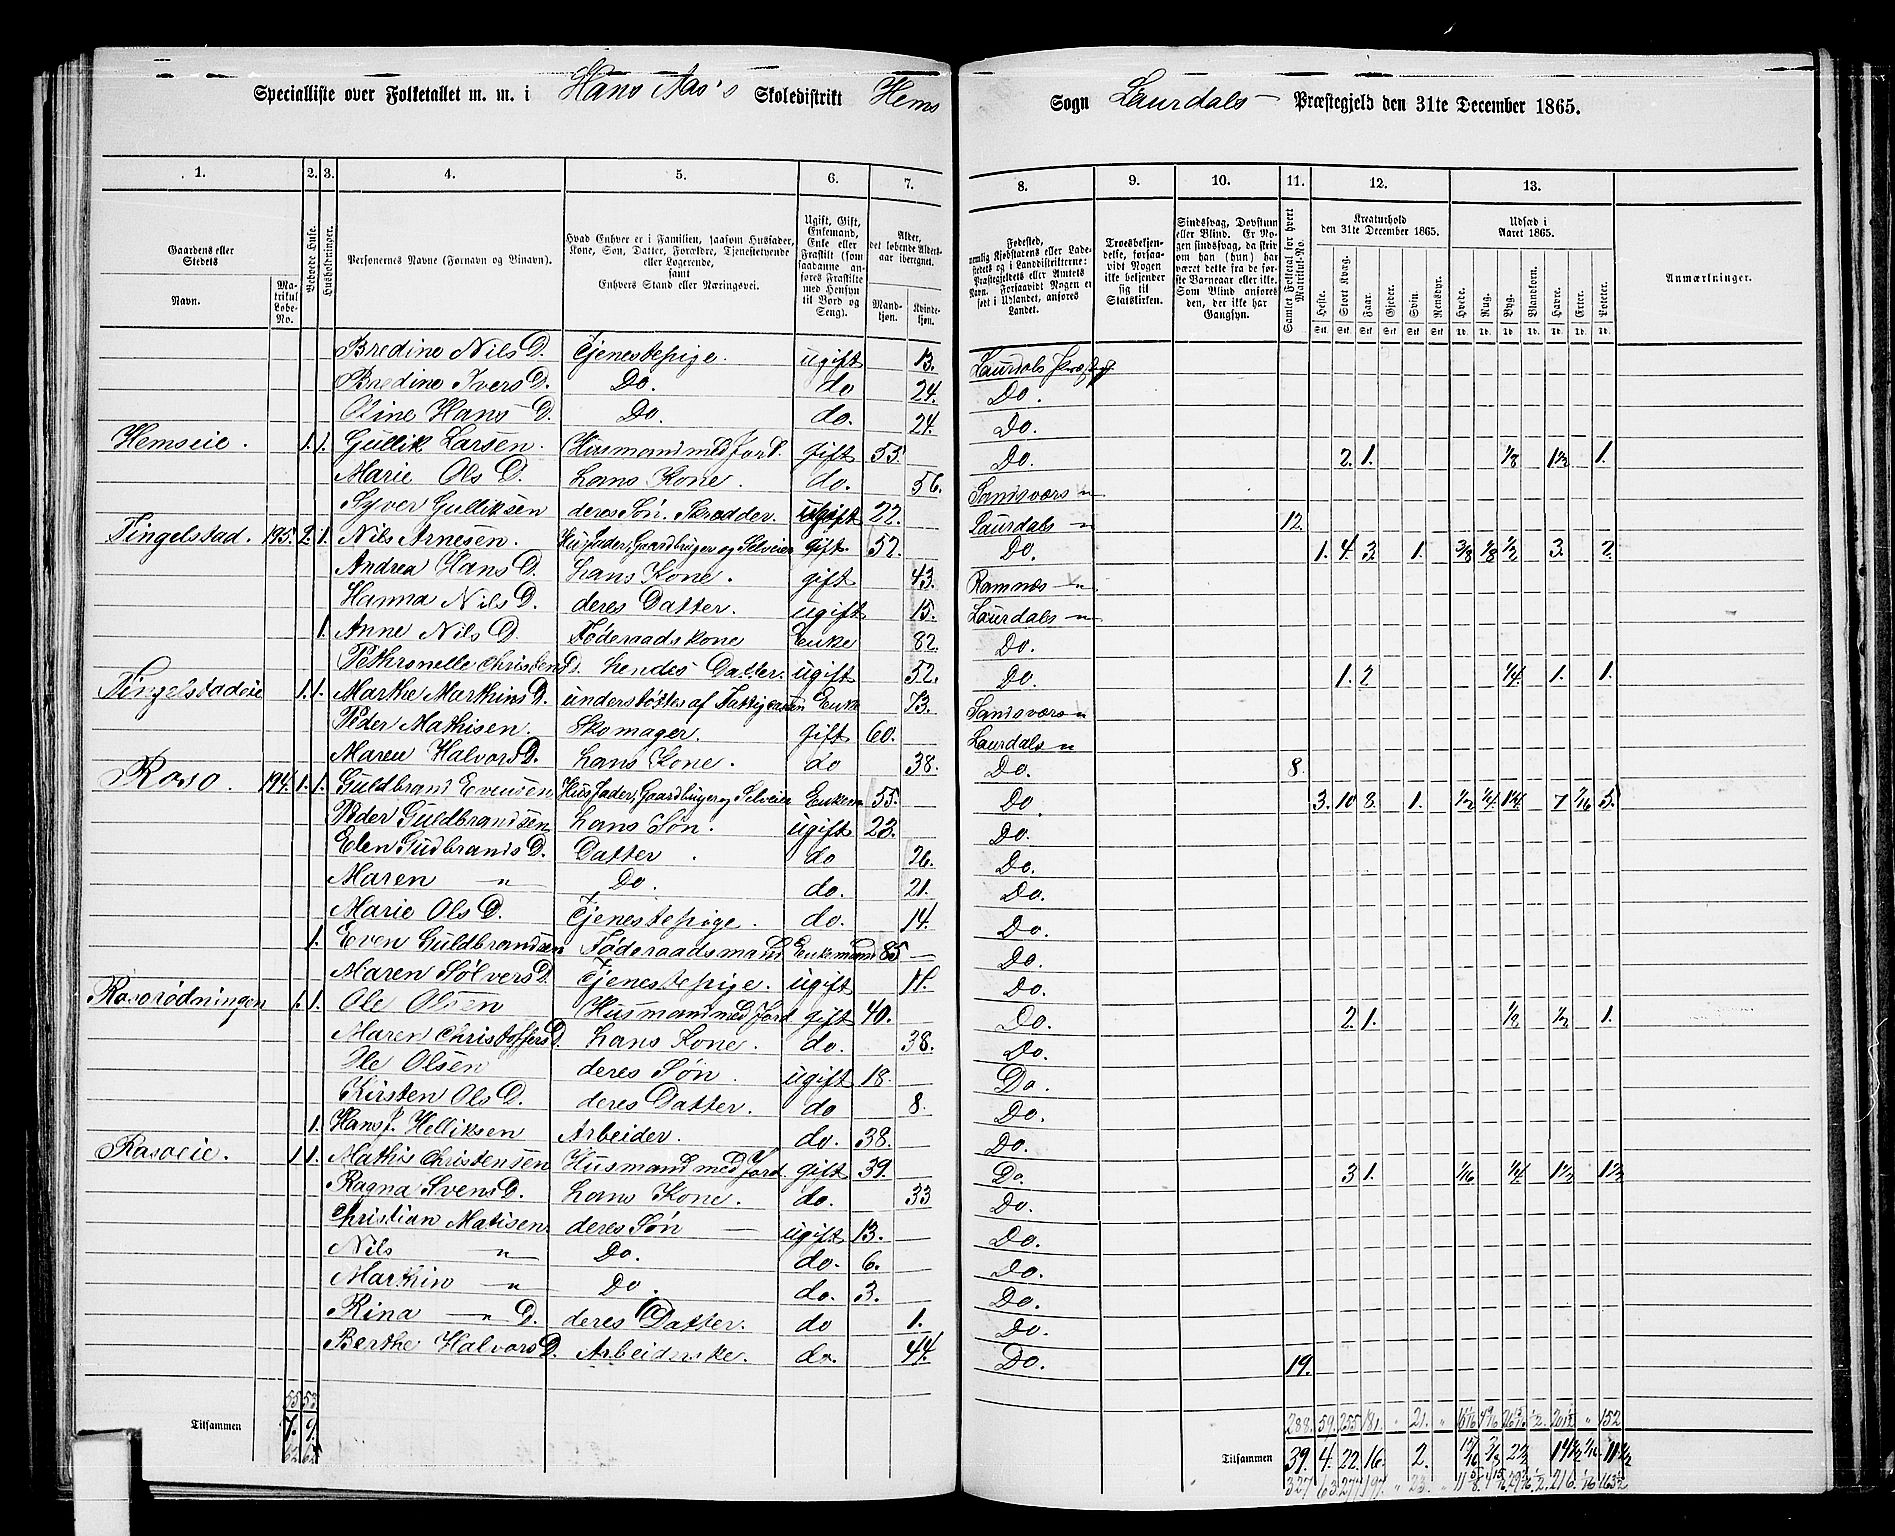 Specialliste over Folketallet m. m. i Hans Aas's Skoledistrikt Hems Sogn Laurdals Præstegjeld den 31te December 1865.
1. 2. 3. 4. 5. 6. 7. 8. 9. 10. 11. 12. 13.
Gaardens eller Stedets
Navn. Matrikul Løbe-No.
Beboede Huse.
Husholdninger.
Personernes Navne (Fornavn og Binavn).
Hvad Enhver er i Familien, saasom Husfader, Kone, Søn, Datter, Forældre, Tjenestetyende eller Logerende, samt Enhvers Stand eller Næringsvei.
Ugift, Gift, Enkemand, Enke eller Fraskilt (som saadanne anføres Fraskilte med Hensyn til Bord og Seng).
Alder, det løbende Aldersaar iberegnet.
Mandkjøn. Kvindekjøn.
Fødested,
Troesbekjendelse, forsaavidt Nogen ikke bekjender sig til Statskirken.
Sindssvag, Døvstum eller Blind. Er Nogen sindssvag, da skriv om han (hun) har været dette fra de første Barneaar eller ikke. Som Blind anføres den, der ikke har Gangsyn.
Samlet Folketal for hvert Matrikul-No.
Kreaturhold den 31te December 1865.
Heste. Stort Kvæg. Faar. Gjeder. Svin. Rensdyr.
Udsæd i Aaret 1865.
Hvede. Rug. Byg. Blandkorn. Havre. Erter. Poteter.
Anmærkninger.
Bredine Nils D. Tjenestepige. ugift 13. Laurdals Præstegj
Bredine Ivers D. Do. do 24. Do.
Oline Hans D. Do. do. 24. Do.
Hemseie. 1. 1. Gullik Larsen. Husmand med Jord. gift 55. Do. 2. 1. 1/8 1 1/2 1.
Marie Ols D. hans Kone. do. 56. Sandsværs "
Syver Gulliksen deres Søn. Skrædder. ugift 22. Laurdals " 12.
Tingelstad. 195. 2. 1. Nils Arnesen. Husfader, Gaardbruger og Selveier gift. 52. Do. 1. 4. 3. 1. 3/8 1/8 1/2 3. 2.
Andrea Hans D. hans Kone. gift 43. Ramnæs "
Hanna Nils D. deres Datter. ugift 15. Laurdals "
1. Anne Nils D. Føderaadskone Enke 82. Do.
Pethronelle Christens D. hendes Datter. ugift 52. Do. 1. 2 1/4 1. 1.
Tingelstadeie 1. 1. Marthe Markhins D. understøttes af Fattigvæsen Enke 73. Sandsværs "
Peder Mathisen. Skomager. gift 60. Laurdals "
Maren Halvors D. hans Kone. do 38. Do. 8.
Raso. 194. 1. 1. Guldbrand Evensen Husfader, Gaardbruger og Selveier Enkem 55. Do 3. 10 8. 1. 1/2 1/4 1 1/4 7 1/16 5.
Peder Guldbrandsen hans Søn. ugift 23. Do.
Elen Gudbrands D. Datter. do 26. Do.
Maren " Do. do. 21. Do.
Marie Ols D. Tjenestepige. do. 14. Do.
1. Even Guldbrandsen Føderaadsmand Enkemand 85 Do.
Maren Sølvers D. Tjenestepige. ugift 11. Do.
Rasorødningen 1. 1. Ole Olsen Husmand med Jord gift 40. Do. 2. 1. 1/2 1/2 1.
Maren Christoffers D. hans Kone. do. 38. Do.
Ole Olsen deres Søn. ugift 18. Do.
Kirsten Ols D. deres Datter. do 8. Do.
1. Hans J. Helliksen Arbeider. do. 38. Do.
Rasoeie. 1 1. Mathis Christensen Husmand med Jord gift 39. Do. 3 1. 1/16 1/4 1 1/2 1 1/2
Ragna Svens D. hans Kone. do. 33 Do.
Christian Matisen deres Søn ugift 13. Do.
Nils " Do. do. 6. Do.
Markhin " Do. do. 3. Do.
Rina " D. deres Datter. do 1. Do.
Berthe Halvors D. Arbeiderske. do. 44. Do. 19.
53 53
Tilsammen 7. 9.
288. 59. 255 181. " 21. " 152
Tilsammen 39. 4. 22. 16. 2. 11 1/2
327 63 277 197. " 23. " 163 1/2